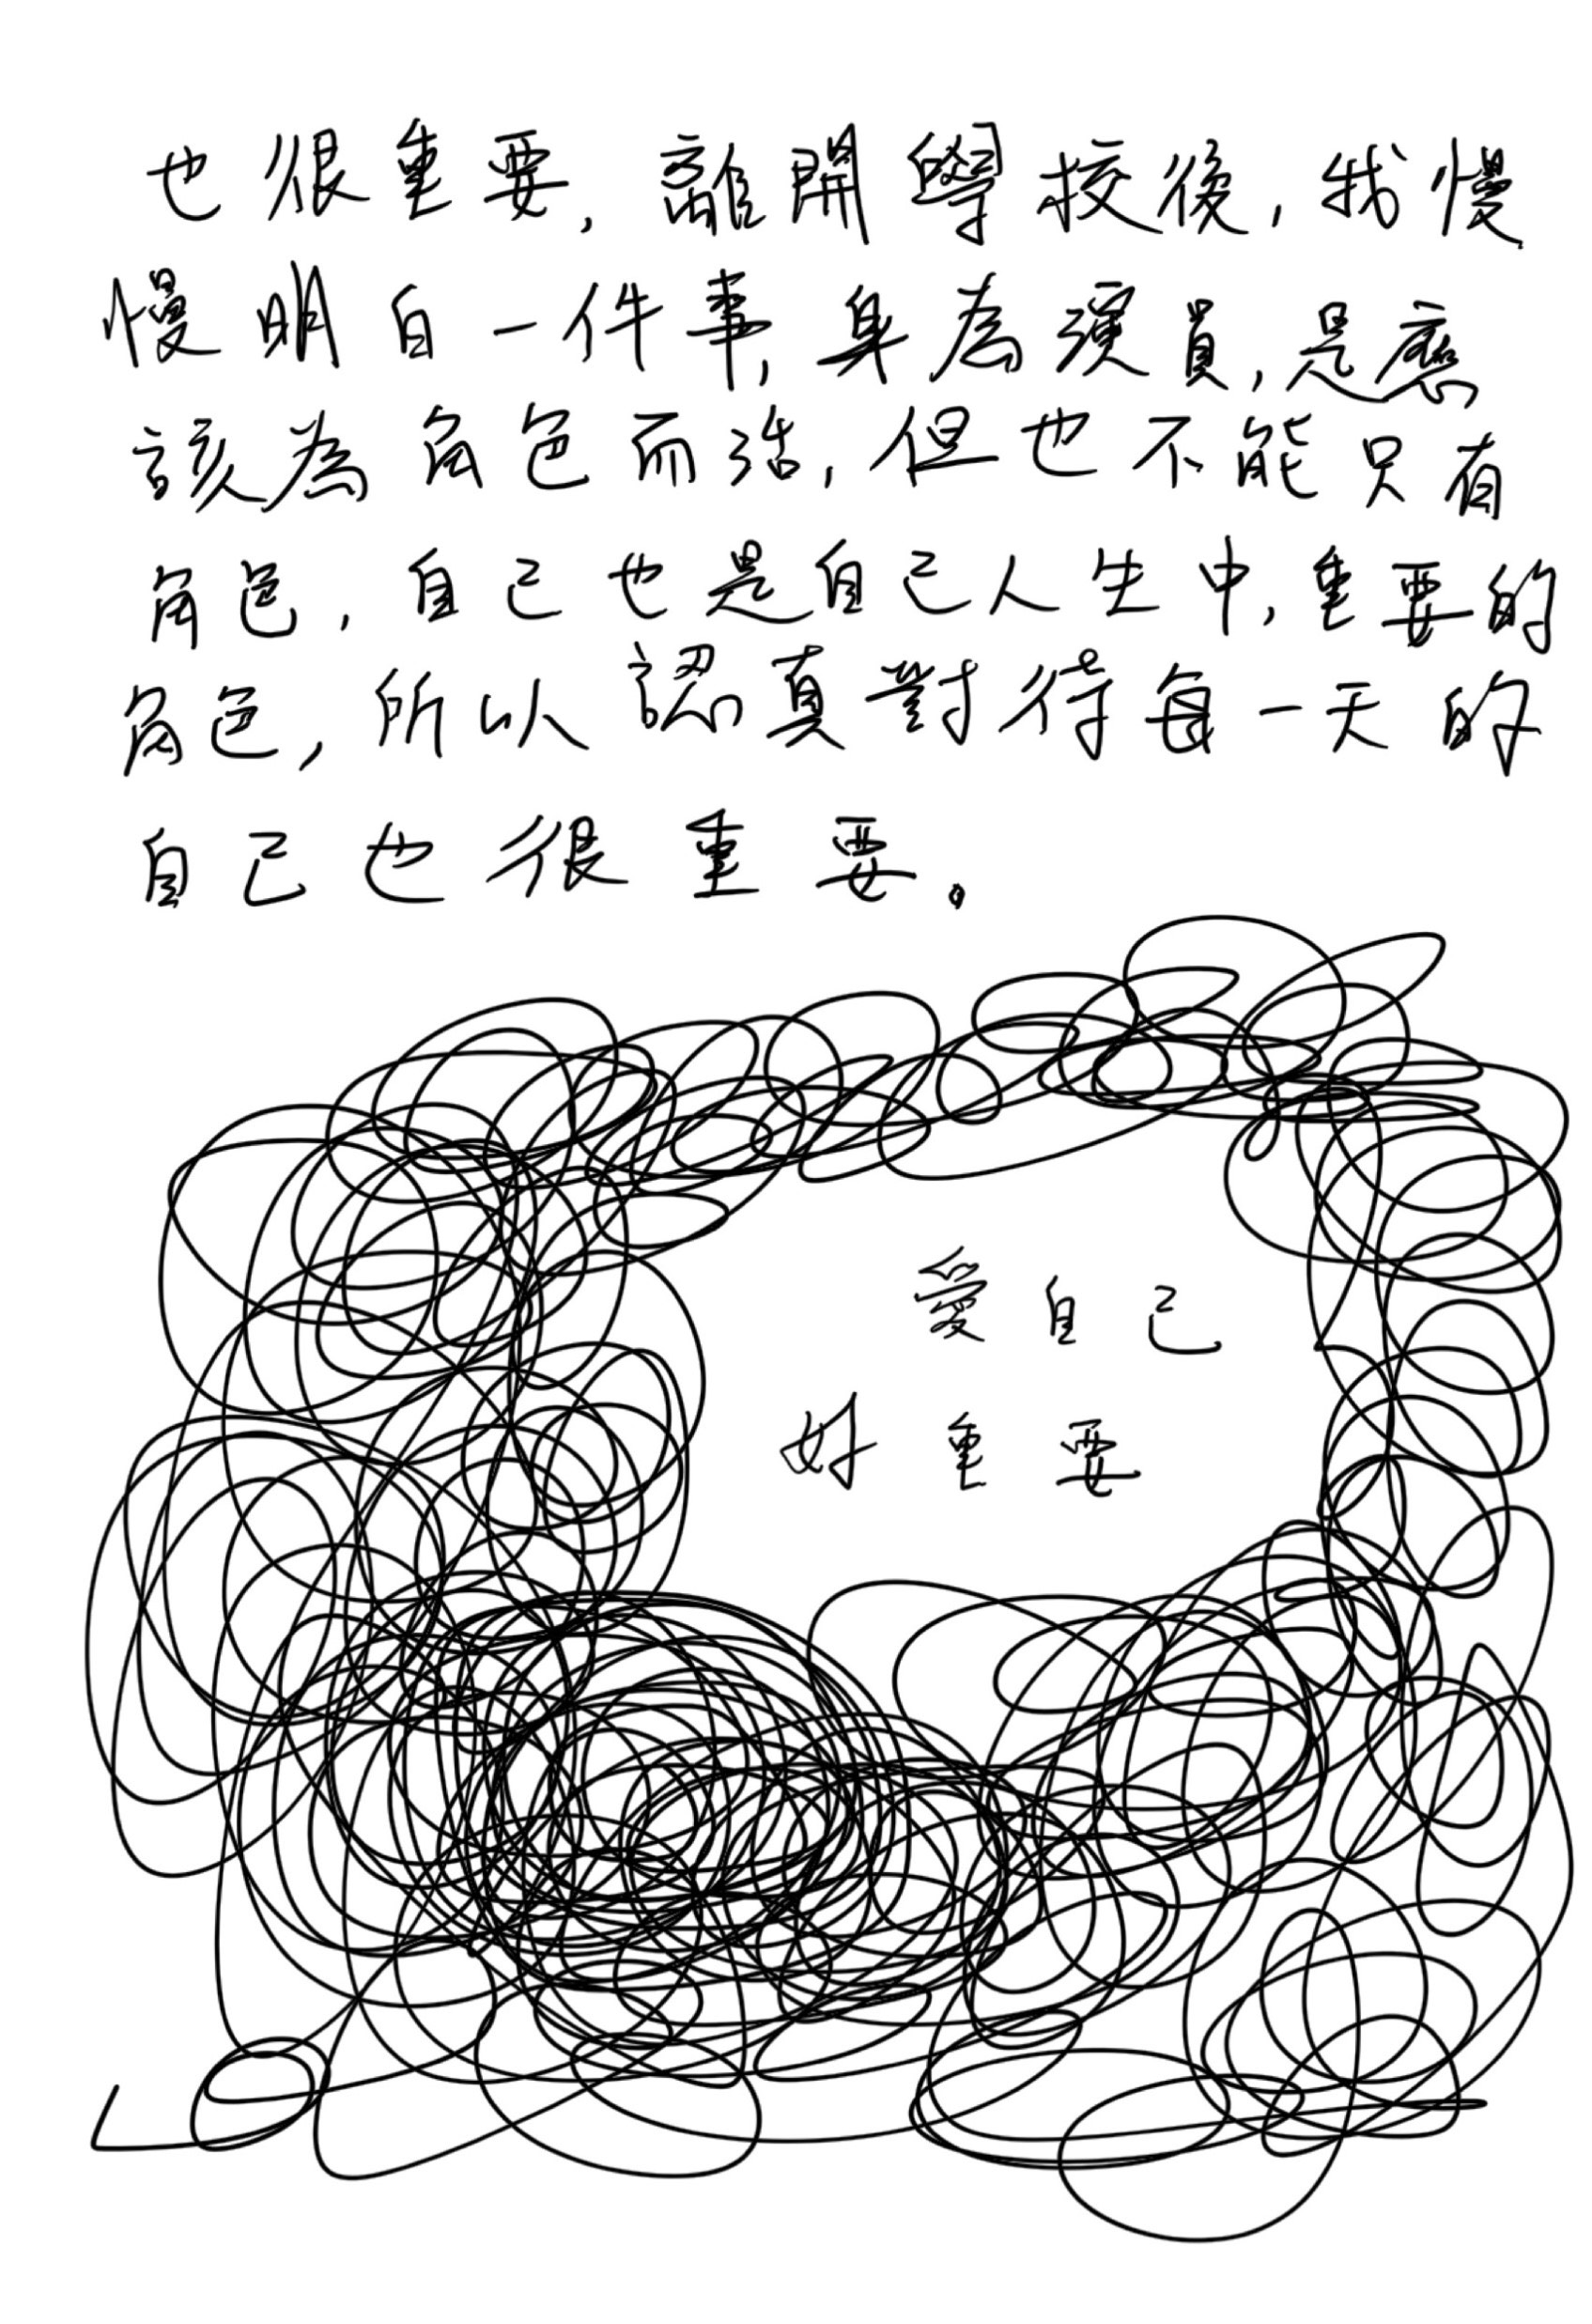 也很重要，離開學校後，我慢
慢明白一件事，身為演員，是應
該為角色而活，但也不能只有
角色，自己也是自己人生中，重要的
角色，所以認真對待每一天的
自己也很重要。
愛自己
好重要